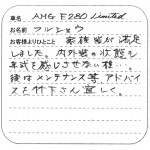 車名 AMG E280 Limited
お名前 フルショウ
お客様よりひとこと 家族皆が満足
しました。内外装の状態も
年式を感じさせない様…。
後はメンテナンス等アドバイ
スを竹下さん宜しく。